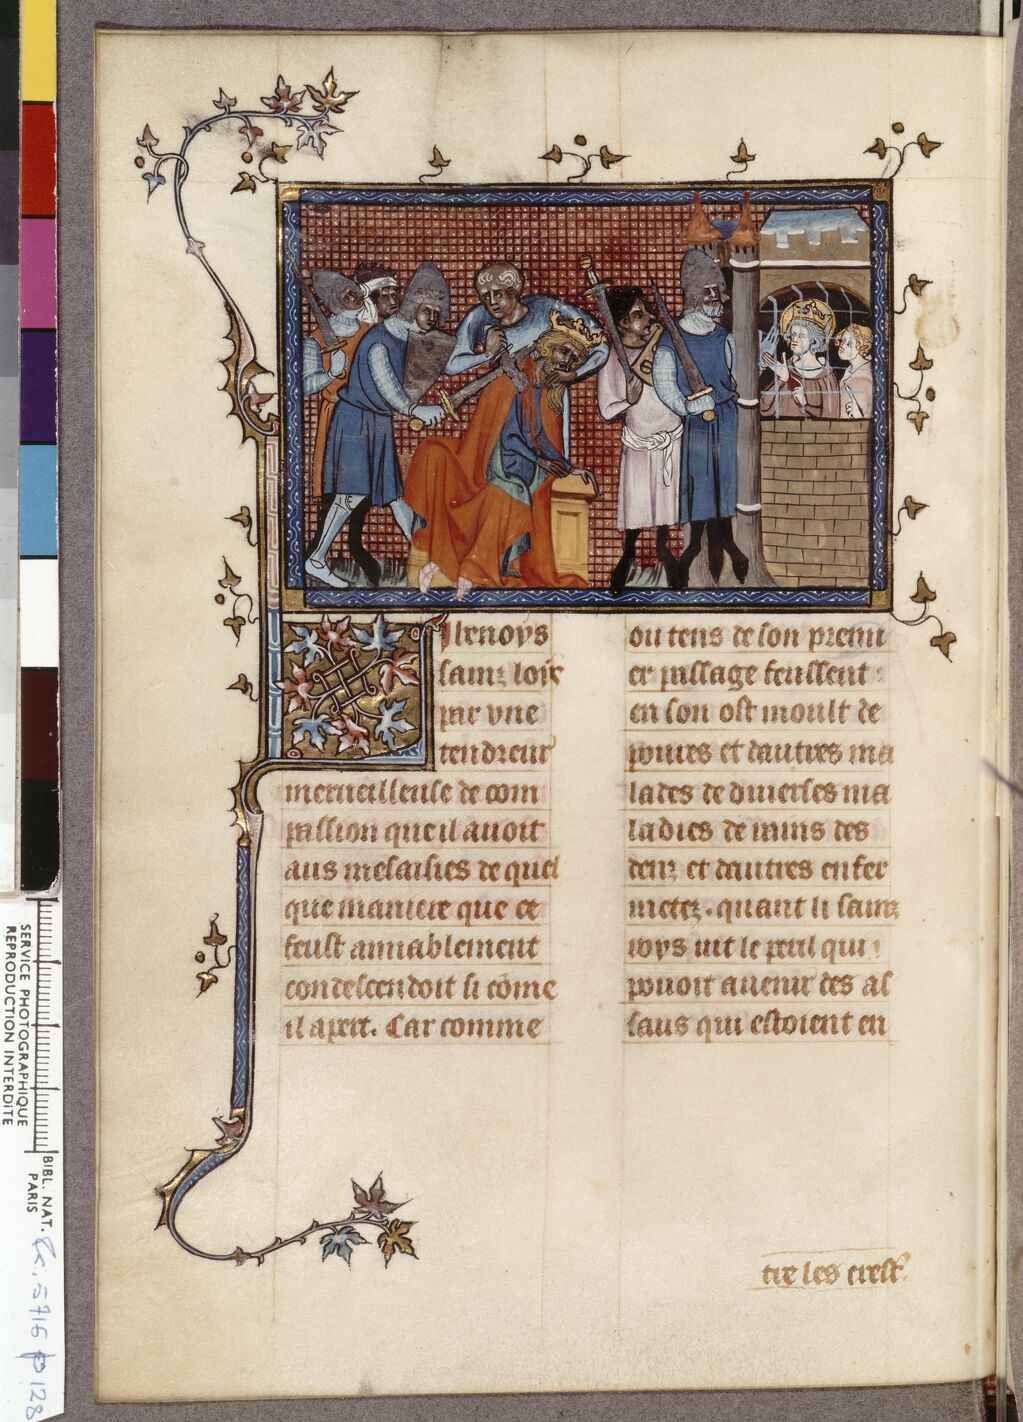 Il benoys
sainz loys
par vne
tendreur
merueilleuse de com
passion que il auoit
aus mesaisies de quel
que maniere que ce
feust amiablement
condescendoit si cōme
il apert. Car comme
ou tens de son premi
er passage feussent
en son ost moult de
poures et dautres ma
lades de diuerses ma
ladies de rains des
denz et dautres enfer
metez. quant li sainz
roys uit le peril qui
pouoit auenir des as
saus qui estoient en
tre les crest
SERVICE PHOTOGRAPHIQUE
REPRODUCTION INTERDITE
BIBL. NAT.
PARIS
fr. 5716 p 128